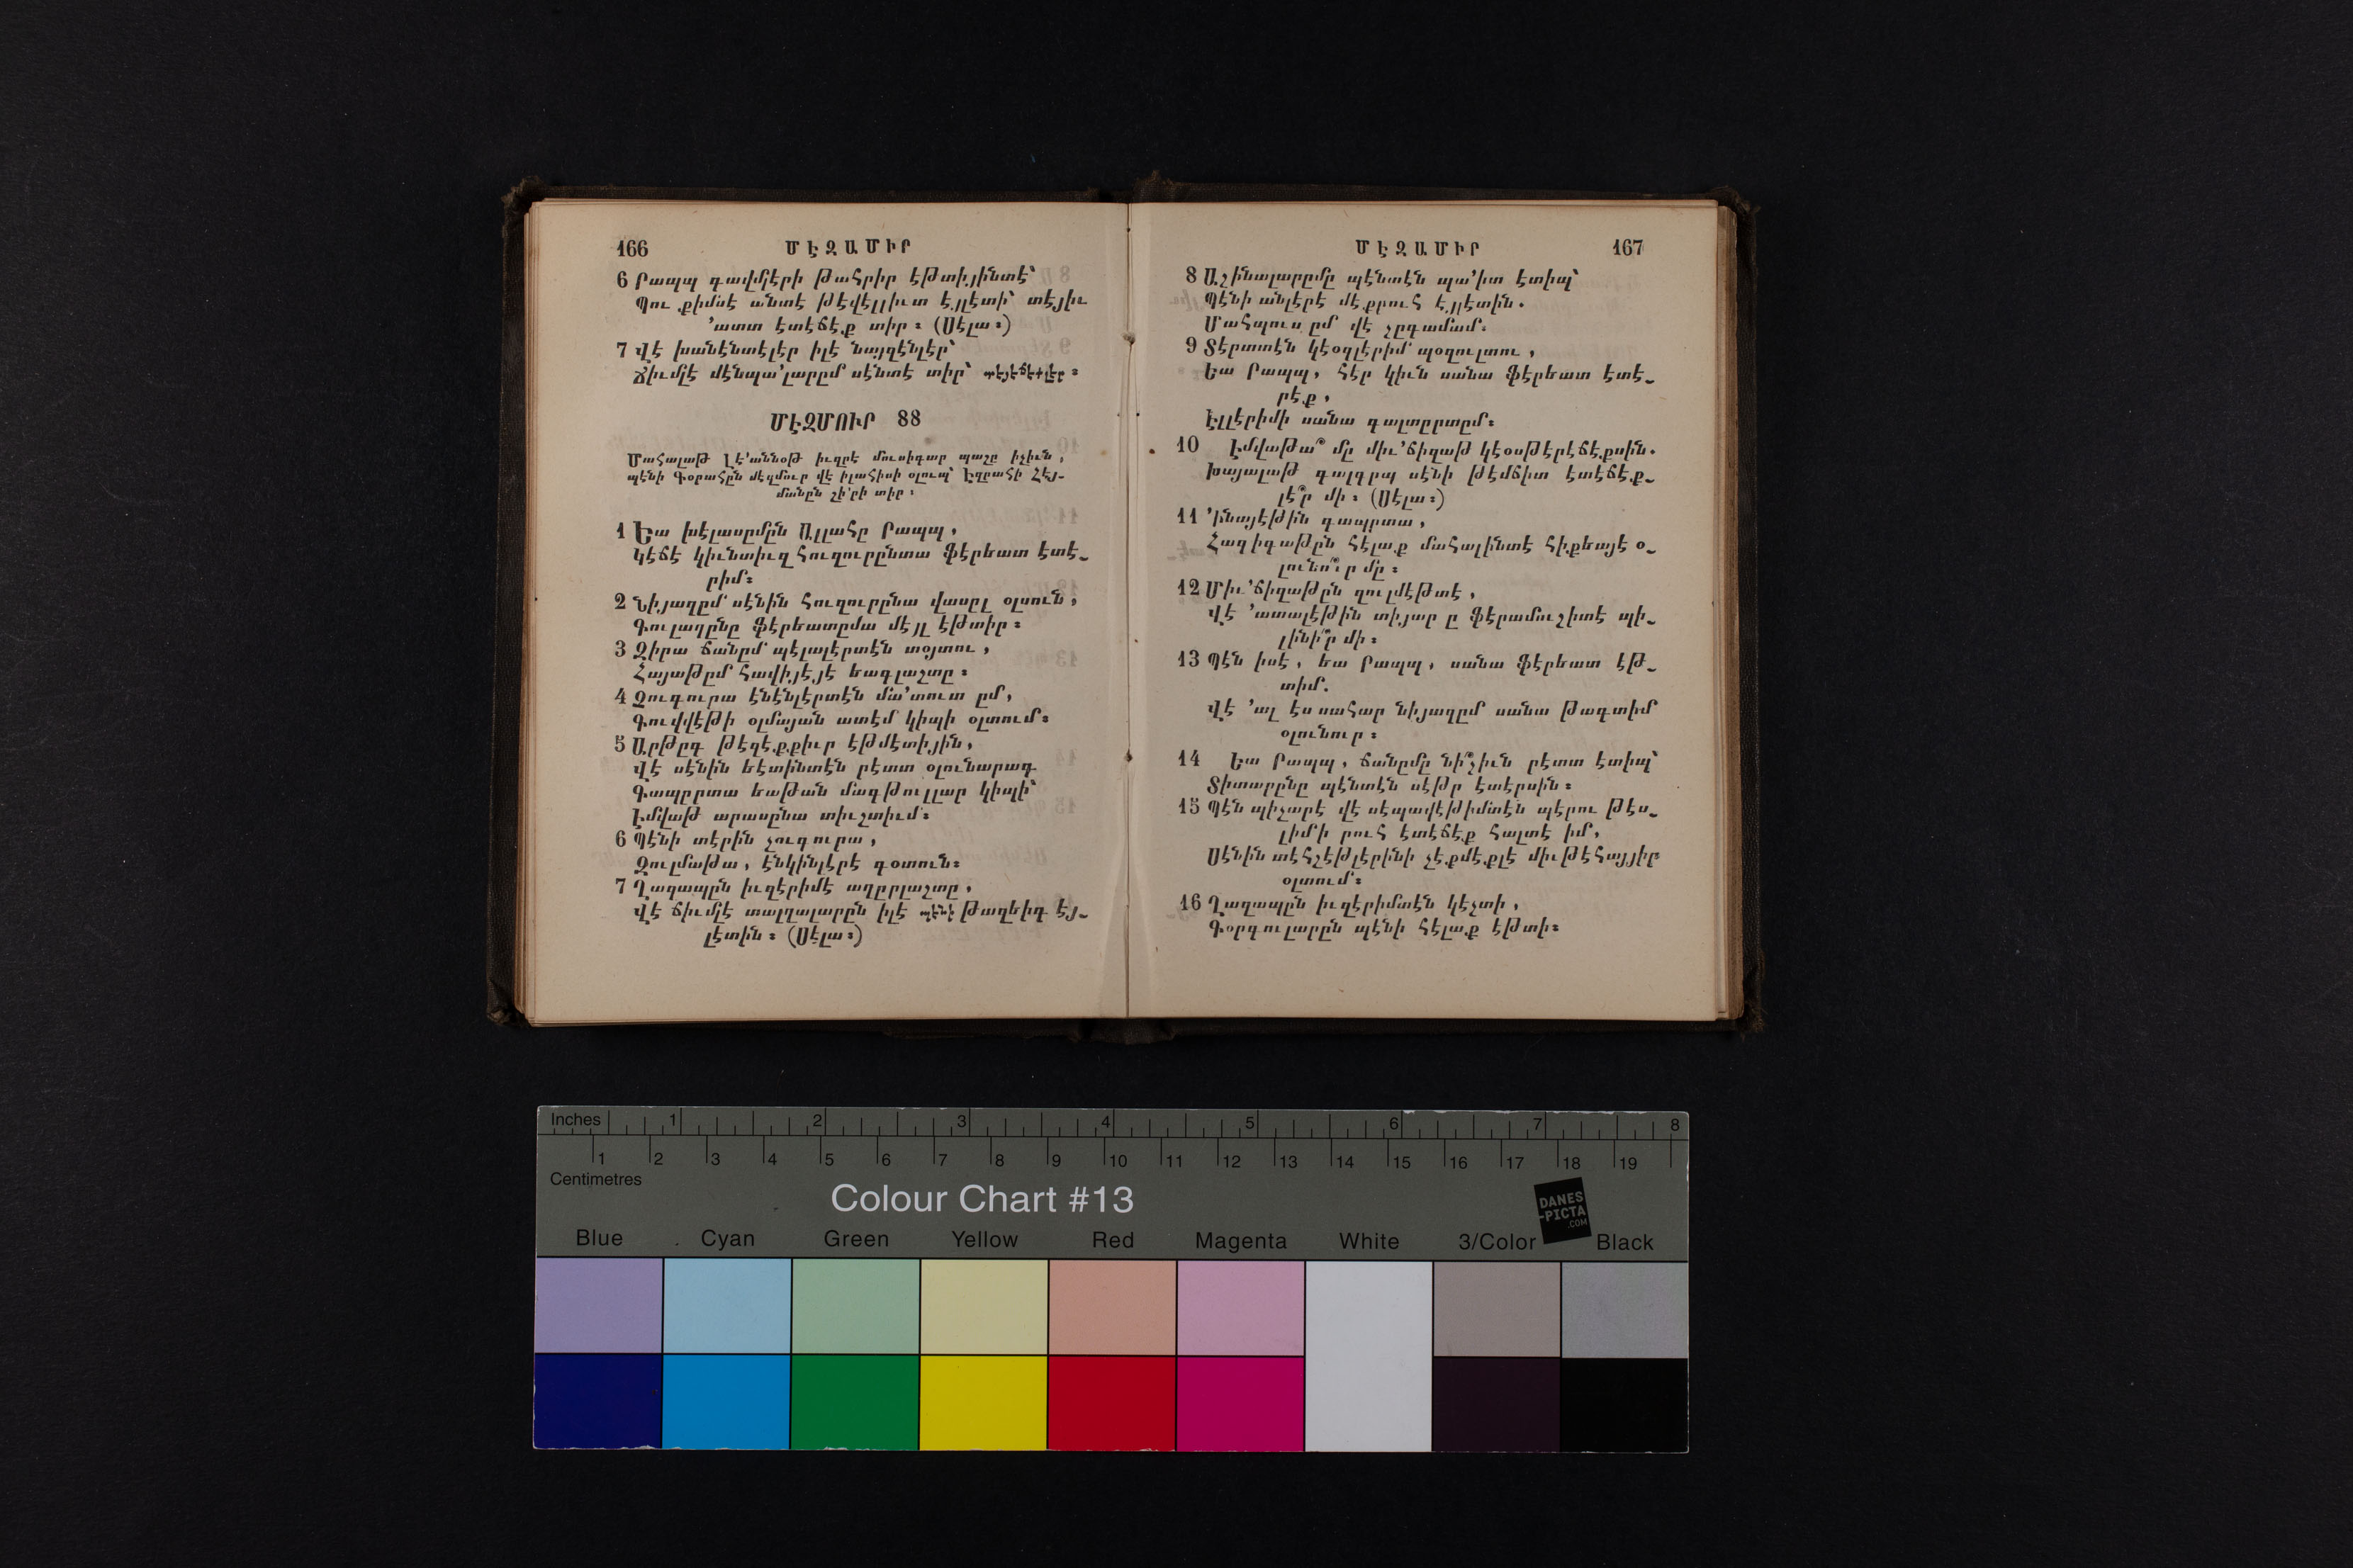 166 ՄԷԶԱՄԻՐ
6 Րապպ գավմլէրի թահրիր էթտիյինտէ՝
Պու քիմսէ անտէ թէվէլլիւտ էյլէտի՝ տէյիւ
՚ատտ էտէճէք տիր։ (Սէլա։)
7 Վէ խանէնտէլէր իլէ նայզէնլէր՝
Ճիւմլէ մէնպա՚լարըմ սէնտէ տիր՝ տէյէճէքլէր։
ՄԷԶՄՈՒՐ 88
Մահալաթ Լէ՚աննօթ իւզրէ մուսիգար պաշը իչիւն,
պէնի Գօրահըն մէզմուր վէ իլահիսի օլուպ՝ Էզրահի Հէյ֊
մանըն շի՚րի տիր։
1 Եա խէլասըմըն Ալլահը Րապպ,
Կէճէ կիւնտիւզ հուզուրընտա ֆէրեատ էտէ֊
րիմ։
2 Նիյազըմ սէնին հուզուրընա վասըլ օլսուն,
Գուլաղընը ֆէրեատըմա մէյլ էթտիր։
3 Զիրա ճանըմ պէլալէրտէն տօյտու,
Հայաթըմ հավիյէյէ եագլաշտը։
4 Չուգուրա էնէնլէրտէն մա՚տուտ ըմ,
Գուվվէթի օլմայան ատէմ կիպի օլտում։
5 Արթըգ թէզէքքիւր էթմէտիյին,
Վէ սէնին եէտինտէն րէտտ օլունարագ
Գապըրտա եաթան մագթուլլար կիպի՝
Էմվաթ արասընա տիւշտիւմ։
6 Պէնի տէրին չուգուրա,
Զուլմաթա, էնկինլէրէ գօտուն։
7 Ղազապըն իւզէրիմէ աղըրլաշտը,
Վէ ճիւմլէ տալղալարըն իլէ պէնի թազեիգ էյ֊
լէտին։ (Սէլա։)
ՄԷԶԱՄԻՐ 167
8 Աշինալարըմը պէնտէն պա՚իտ էտիպ՝
Պէնի անլէրէ մէքրուհ էյլէտին.
Մահպուս ըմ վէ չըգամամ։
9 Տէրտտէն կէօզլէրիմ պօզուլտու,
Եա Րապպ, հէր կիւն սանա ֆէրեատ էտէ֊
րէք,
Էլլէրիմի սանա գալտըրտըմ։
10 Էմվաթա՞ մը միւ՚ճիզաթ կէօսթէրէճէքսին.
Խայալաթ գալգըպ սէնի թէմճիտ էտէճէք֊
լէ՞ր մի։ (Սէլա։)
11 ՚Ինայէթին գապըրտա,
Հագիգաթըն հէլաք մահալինտէ հիքեայէ օ֊
լունո՞ւր մը։
12 Միւ՚ճիզաթըն զուլմէթտէ,
Վէ ՚ատալէթին տիյար ը ֆէրամուշիտէ պի֊
լինի՞ր մի։
13 Պէն իսէ, եա Րապպ, սանա ֆէրեատ էթ֊
տիմ.
Վէ ՚ալ էս սահար նիյազըմ սանա թագտիմ
օլունուր։
14 Եա Րապպ, ճանըմը նի՞չիւն րէտտ էտիպ՝
Տիտարընը պէնտէն սէթր էտէրսին։
15 Պէն պիչարէ վէ սէպավէթիմտէն պէրու թէս֊
լիմ՚ի րուհ էտէճէք հալտէ իմ,
Սէնին տէհշէթլէրինի չէքմէքլէ միւթէհայյիր
օլտում։
16 Ղազապըն իւզէրիմտէն կէչտի,
Գօրգուլարըն պէնի հէլաք էթտի։
Inches 1 2 3 4 5 6 7 8
1 2 3 4 5 6 7 8 9 10 11 12 13 14 15 16 17 18 19
Centimetres
Colour Chart #13
DANES
-PICTA
.COM
Blue Cyan Green Yellow Red Magenta White 3/Color Black